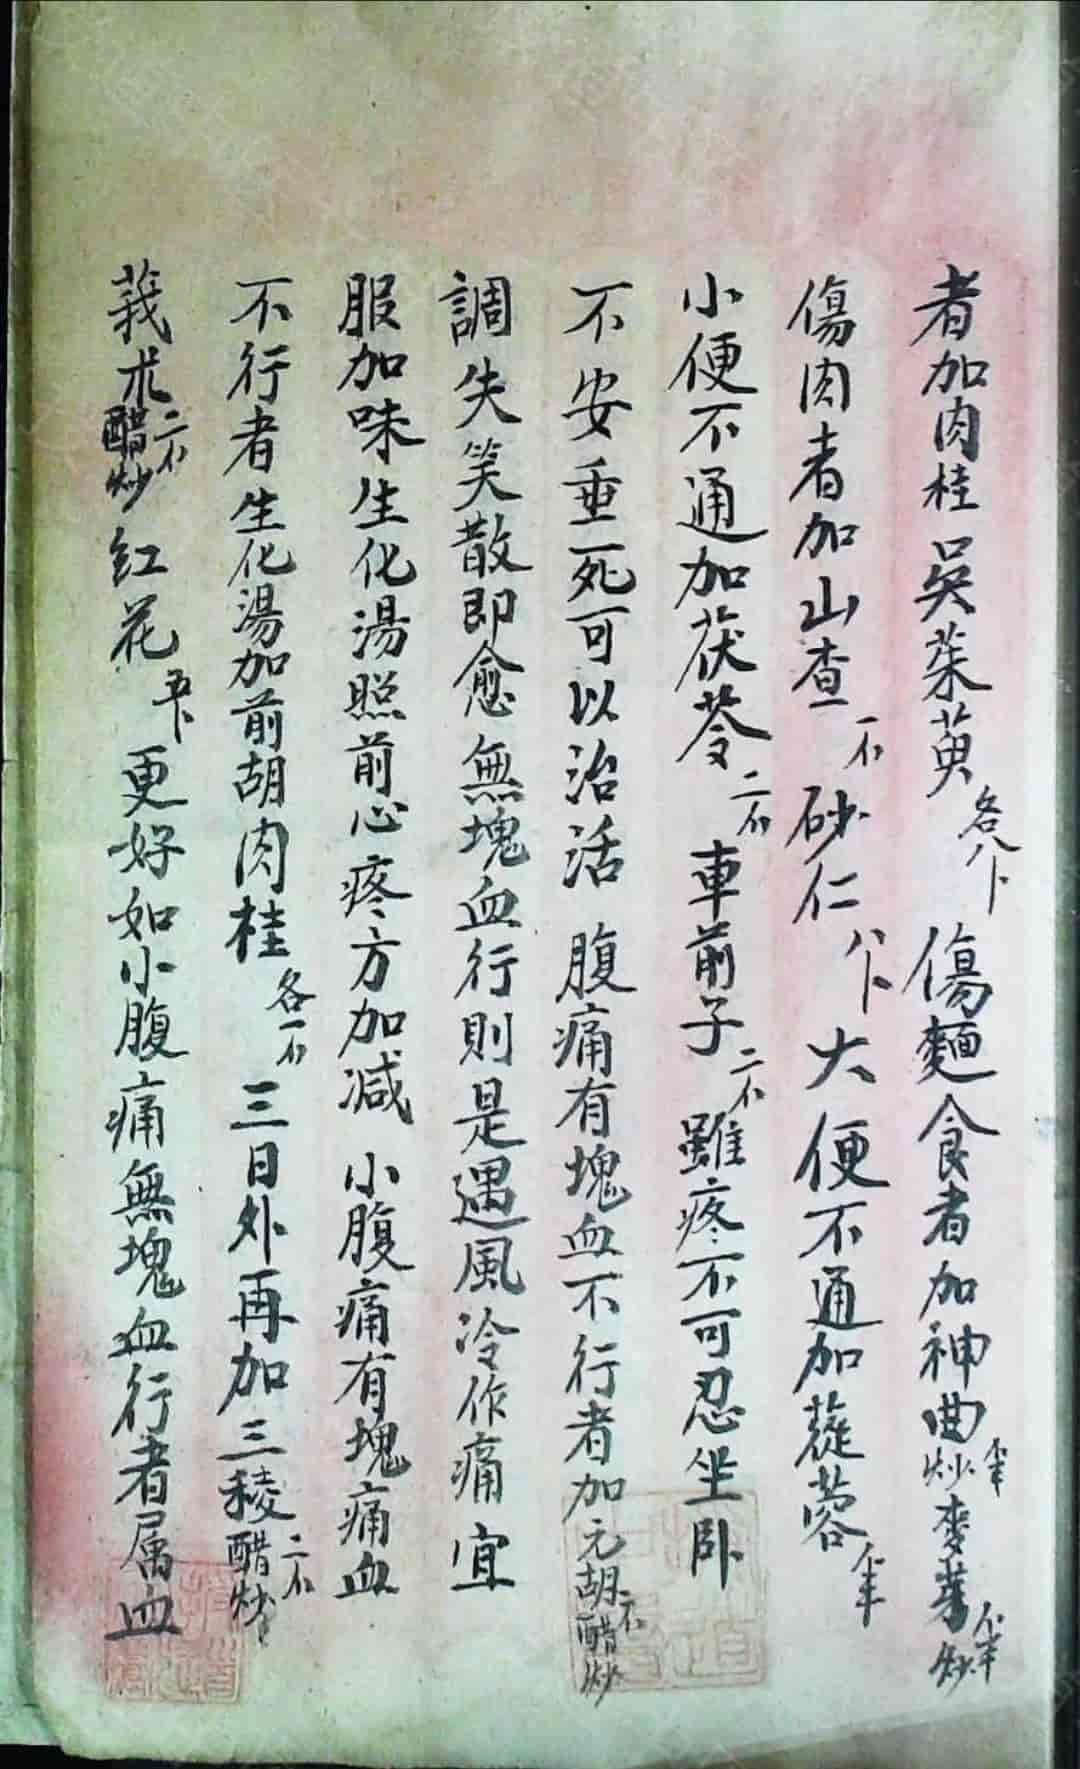 者加肉桂吳茱萸各八卜傷麵食者加神曲炒麥芽炒
傷肉者加山查一不砂仁八卜大便不通加蓯蓉
小便不通加茯苓二不車前子二不雖疼不可忍坐卧
不安垂死可以治活腹痛有塊血不行者加元胡不醋炒
調失笑散即愈無塊血行則是遇風冷作痛宜
服加味生化湯照前心疼方加减小腹痛有塊痛血
不行者生化湯加前胡肉桂各一不三日外再加三稜二不醋炒
莪术二不醋炒红花五卜更好如小腹痛無塊血行者属血